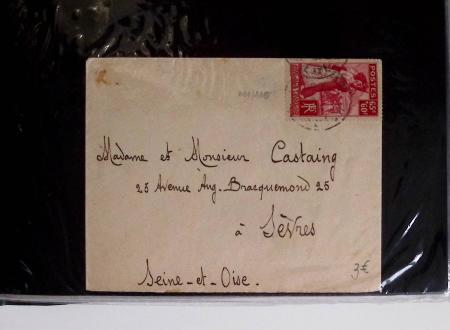 POSTES
65c
+60c
RF
Madame et Monsieur Castaing
25 Avenue Aug. Bracquemond 25
à Sèvres
Seine-et-Oise.
3€